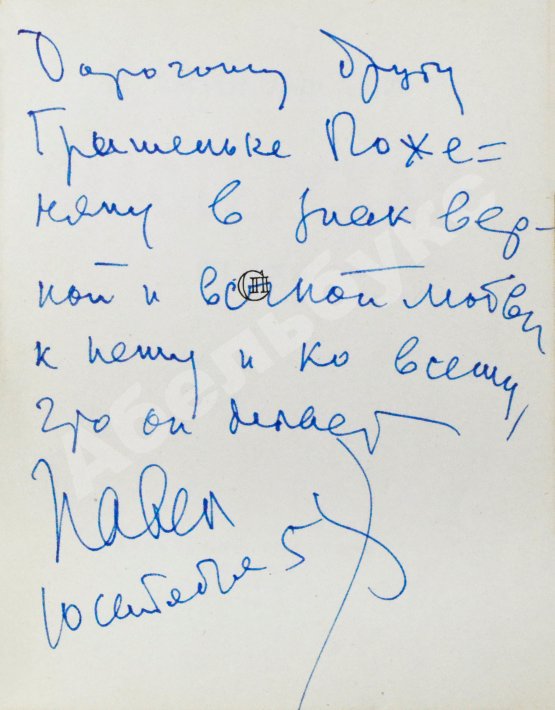 Дорогому другу
Гришеньке Поже=
няну в знак вер-
ной и вечной любви
к нему и ко всему,
что он делает
Павел
10 сентября 57
Абельбукс